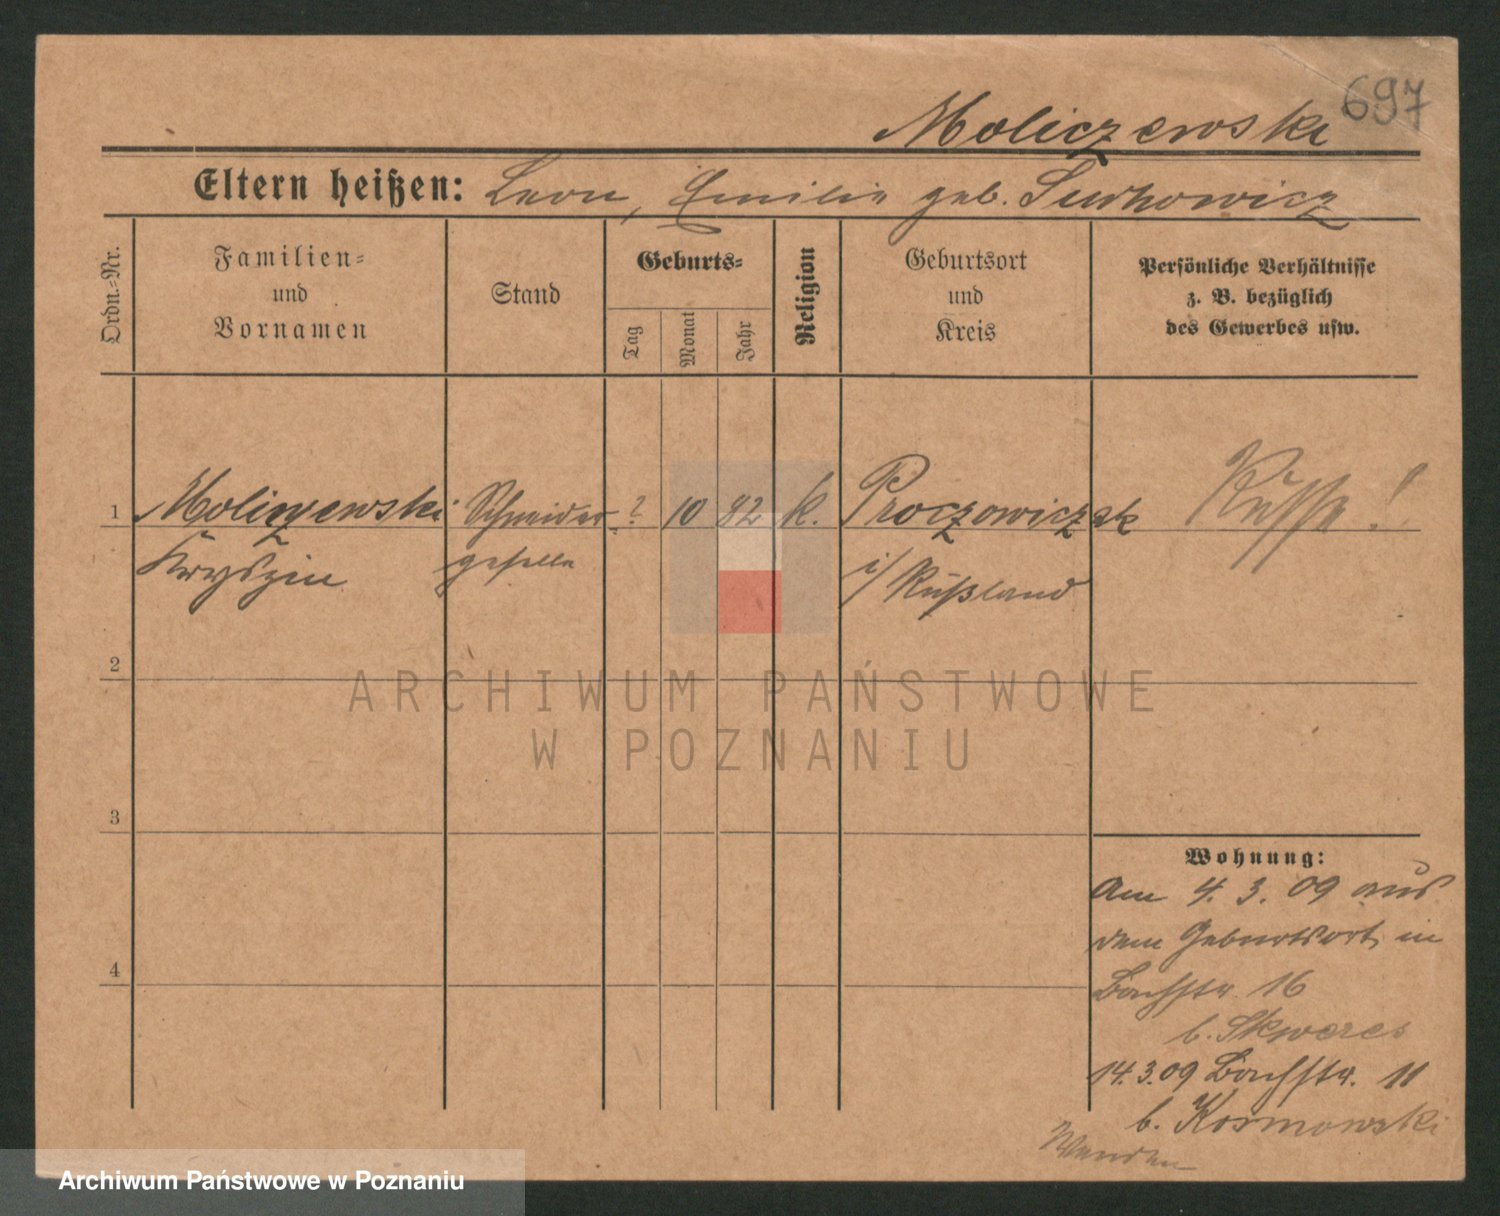 697
Moliczewski
Eltern heißen: Leon, Emilie geb.
Ordn.-Nr.
Familien-
und
Vornamen
Stand
Geburts-
Tag
Monat
Jahr
Religion
Geburtsort
und
Kreis
Persönliche Verhältnisse
z. B. bezüglich
des Gewerbes usw.
1 Moliczewski Schneider ? 10 82 k. Proczowiczek Russe!
Kryszin geselle i/ Rußland
2
3
4
Wohnung:
Am 4. 3. 09 aus
dem Geburtsort in
Bachstr. 16
b. Skweres
14.3.09 Bachstr. 11
b. Kosmowski
Wenden
ARCHIWUM PAŃSTWOWE
W POZNANIU
Archiwum Państwowe w Poznaniu